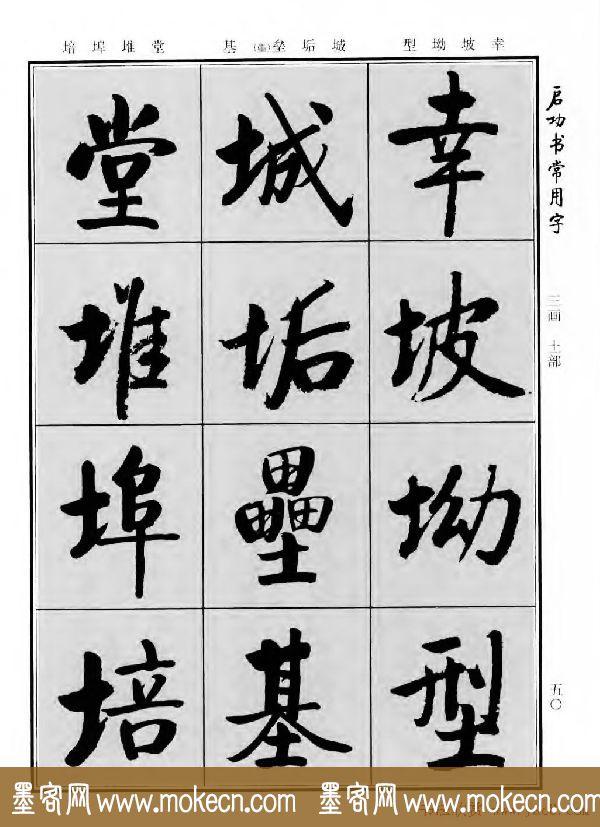 幸坡坳型 城垢垒(壘)基 堂堆埠培
启功书常用字
三画 土部
五〇
幸坡坳型
城垢壘基
堂堆埠培
墨客网 www.mokecn.com 墨客网 www.mokecn.com